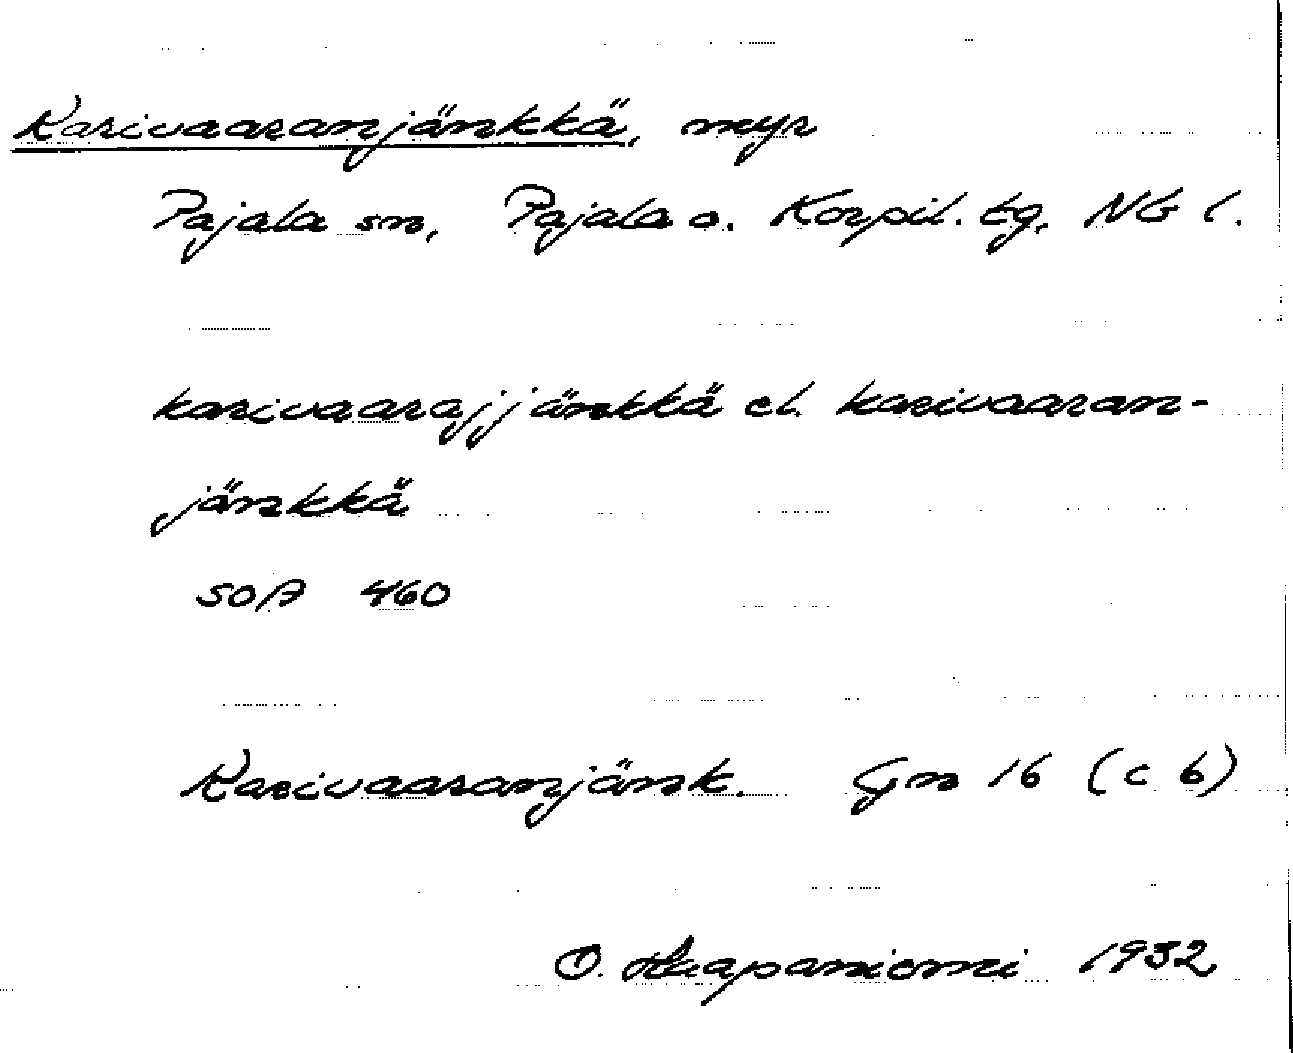 Karivaaranjänkkä, myr
Pajala sn, Pajala o. Korpil. tg. NB l.
karivaarajjänkkä el. karivaaran-
jänkkä
SOA 460
Karivaaranjänk. Gn 16 (c 6)
O. Haapaniemi 1932